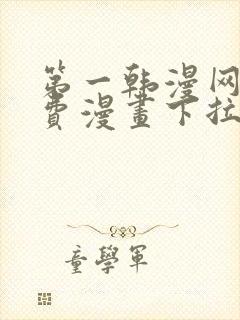 第一韩漫网
費漫畫下拉
童學軍